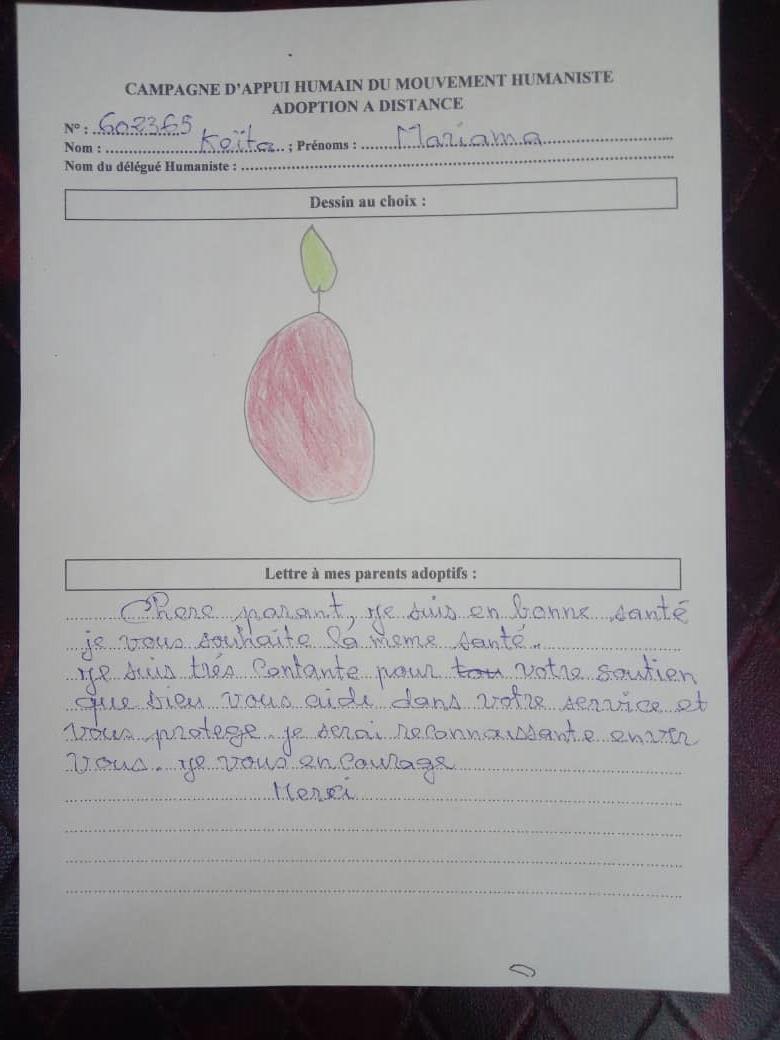 CAMPAGNE D'APPUI HUMAIN DU MOUVEMENT HUMANISTE
ADOPTION A DISTANCE
N° : 602365
Nom : Keïta ; Prénoms : Mariama
Nom du délégué Humaniste :
Dessin au choix :
Lettre à mes parents adoptifs :
Chere parant, je suis en bonne santé
je vous souhaite la meme santé.
je suis trés contante pour tou votre soutien
que dieu vous aide dans votre service et
vous protege. je serai reconnaissante envir
vous. je vous encourage
Merci